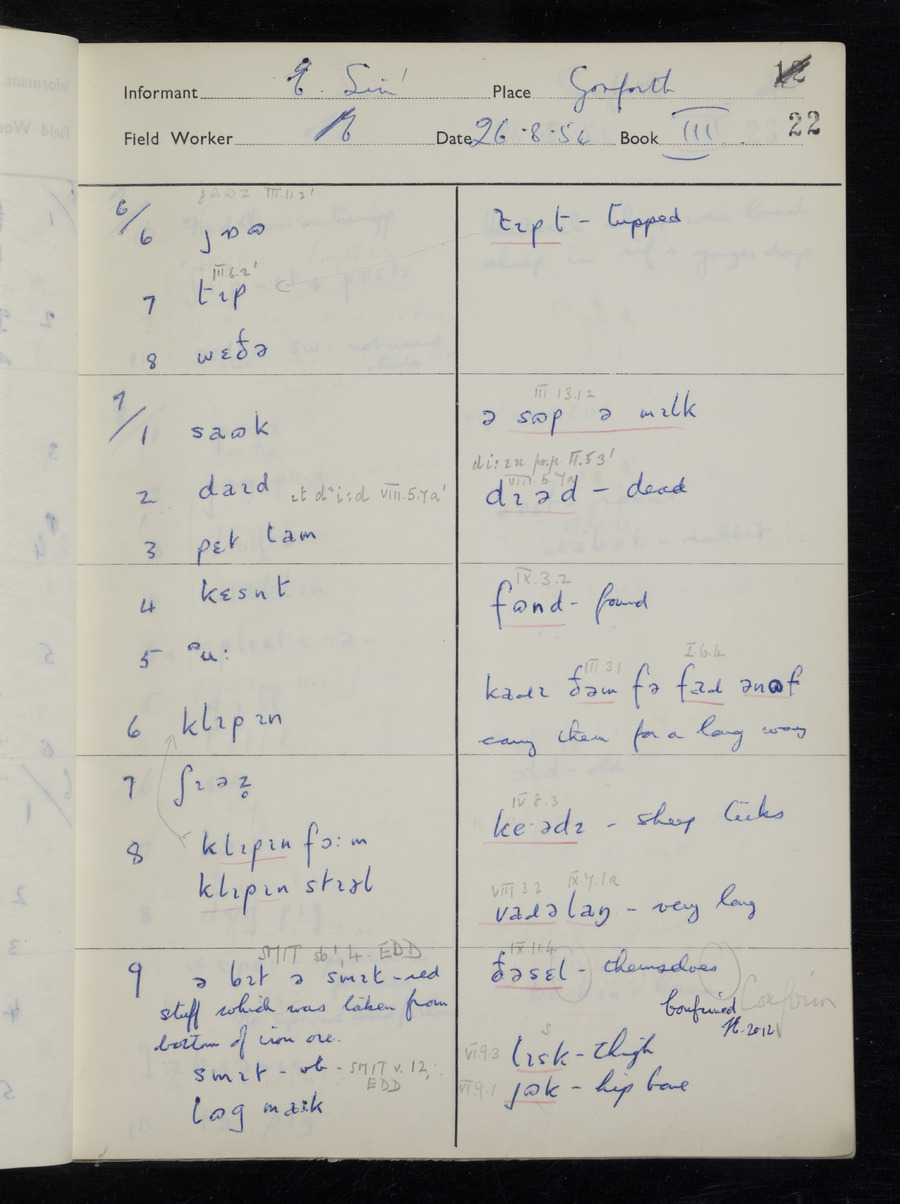 Informant E. Place Gosforth 12
Field Worker Date 26-8-54 Book III 22
III.11.2'
6/6 jɷɷ tɪpt - tupped
III.6.2'
7 tɪp
8 wɛðə
III 13.12
7/1 saɷk ə sɷp ə mɪlk
di:ɪn p.p. II.5.3'
VIII 5.7a
2 daɪd ɪt dˈi:d VIII.5.7a' dɪəd - dead
3 pɛt lam
IX.3.2
4 kɛsnt fɷnd - found
5 ᵊu:
III 3 1 I 6.4
kadɪ ðəm fə fad ənɷf
6 klɪpɪn carry them for a long way
7 ʃɪəz̥
IV 8.3
keˑədɪ - sheep ticks
8 klɪpɪn fɔ:m
klɪpɪn stɪəl
VIII 3.2 IX.7.1a
vadə laŋ - very long
SMIT sb¹, 4. EDD IX.11.4
9 ə bɪt ə smɪt - red ðəsɛl - themselves
stuff which was taken from Confirm
bottom of iron ore. Confirmed
2012
smɪt - vb - SMIT v. 12, VI.9.3 lɪsk - thigh
EDD
lɷg maːk VI.9.1 jɷk - hip bone